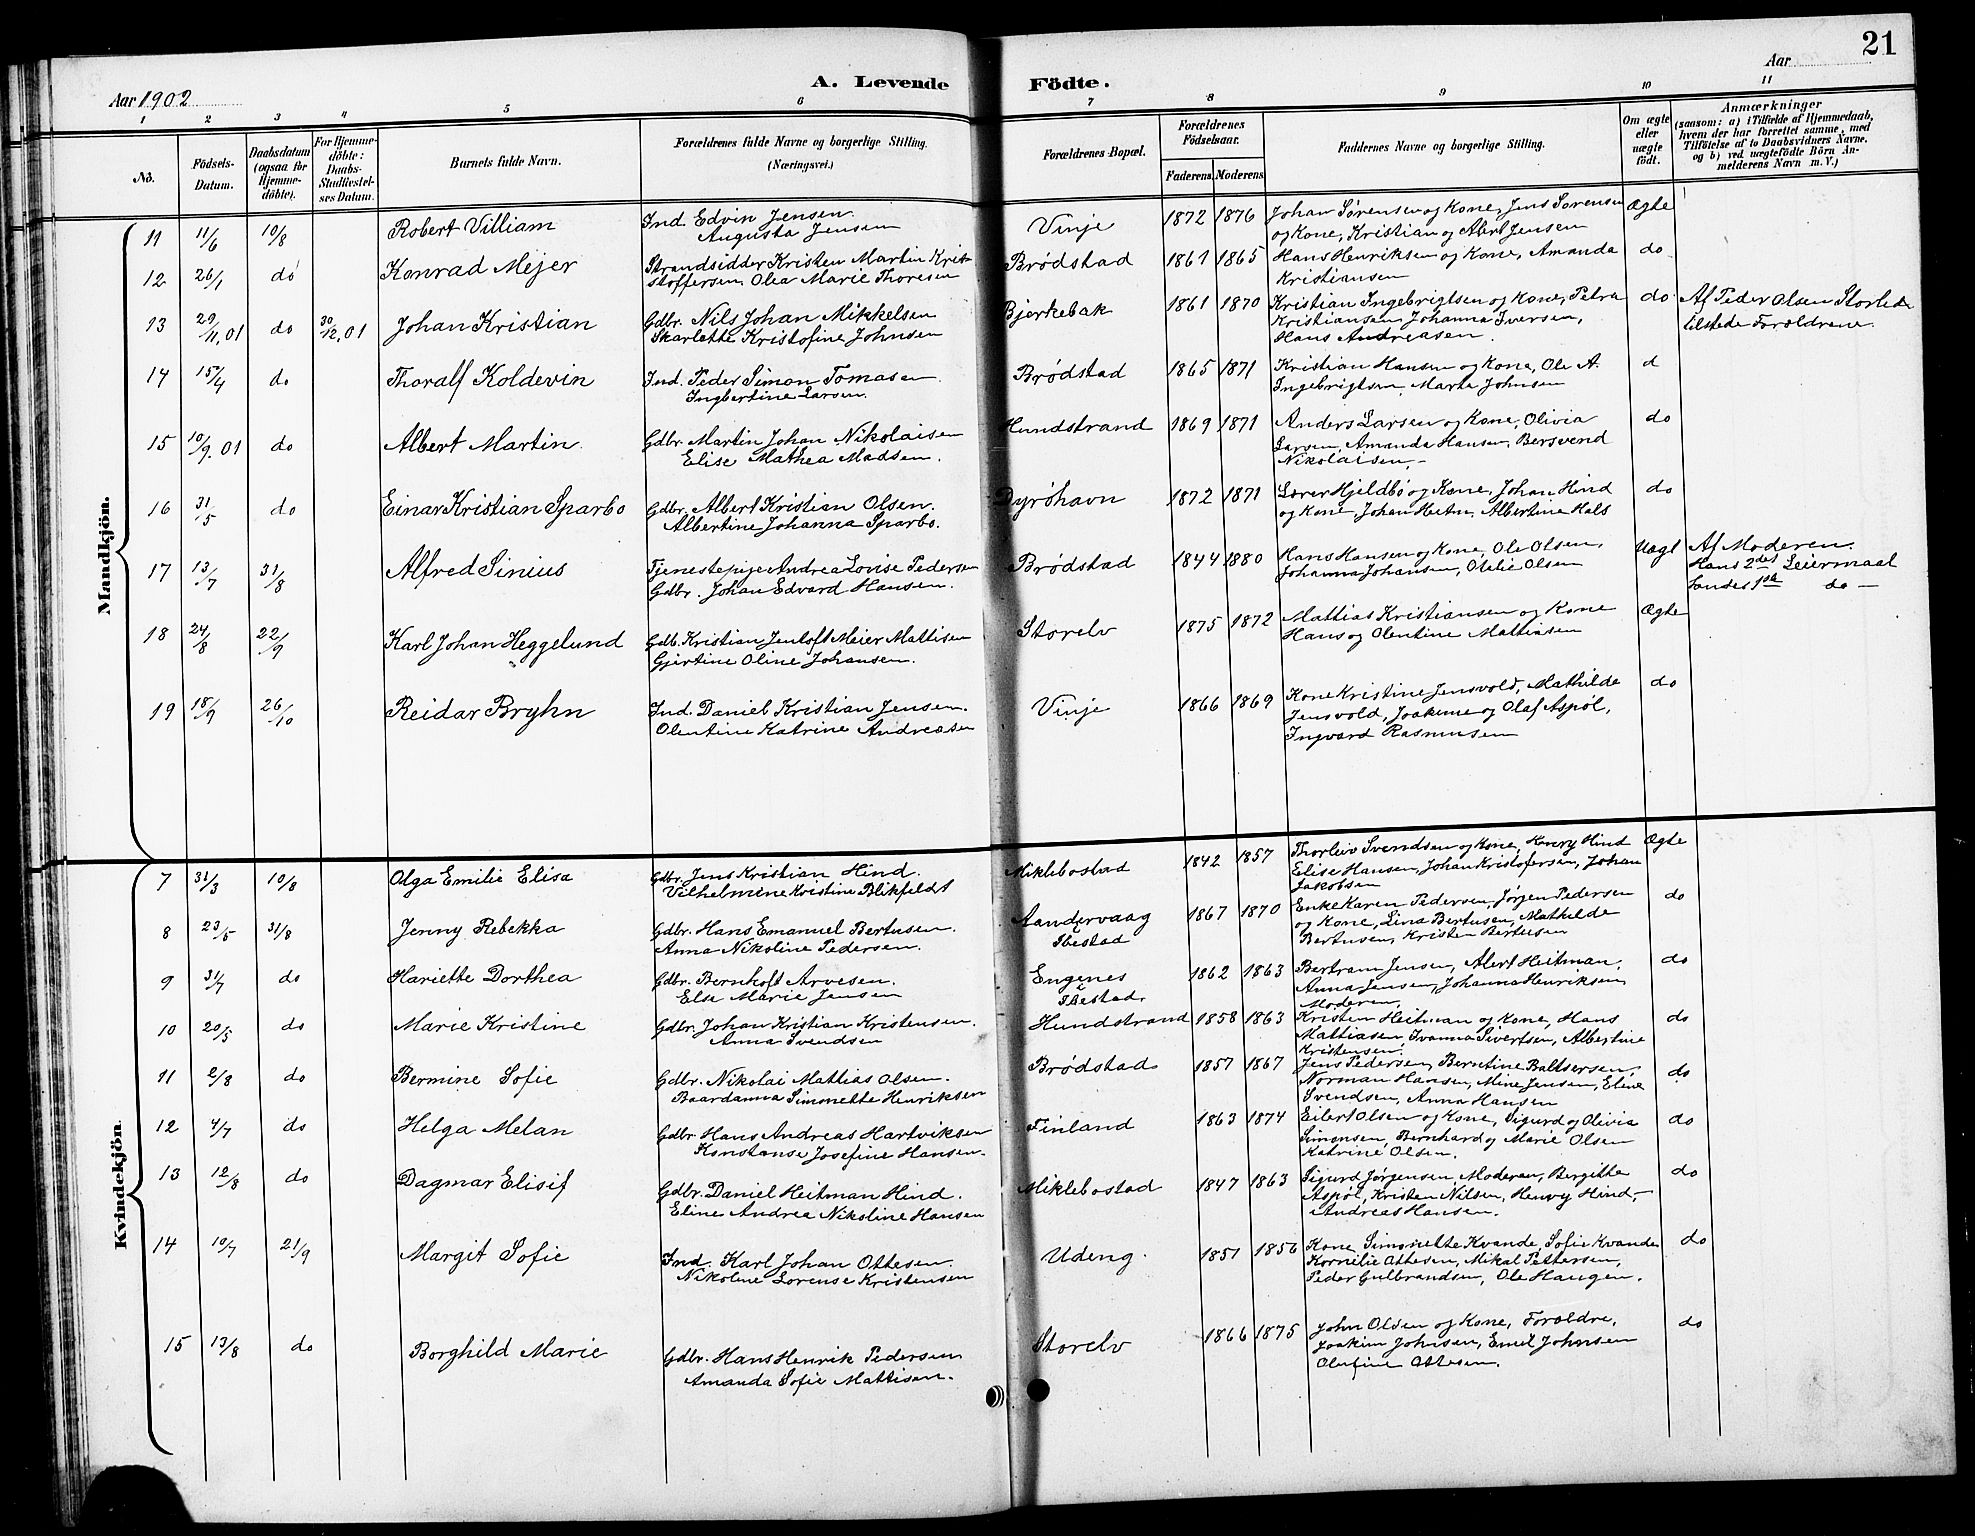 21
Aar 1902
A. Levende Födte.
Aar
1 2 3 4 5 6 7 8 9 10 11
No.
Födsels-Datum.
Daabsdatum (ogsaa for Hjemme-döbte).
For Hjemme-döbte: Daabs-Stadfæstelses Datum.
Barnets fulde Navn.
Forældrenes fulde Navne og borgerlige Stilling. (Næringsvei.)
Forældrenes Bopæl.
Forældrenes Födselsaar.
Faderens. Moderens.
Faddernes Navne og borgerlige Stilling.
Om ægte eller uægte födt.
Anmærkninger
(saasom: a) i Tilfælde af Hjemmedaab, hvem der har forrettet samme, med Tilföielse af to Daabsvidners Navne, og b) ved uægtefödte Börn Anmelderens Navn m. V.)
Mandkjön.
11 11/6 10/8 Robert Villiam Ind. Edvin Jensen. Vinje 1872 1876 Johan Sørensen og Kone, Jens Sørensen Ægte
Augusta Jensen og Kone, Kristian og Alert Jensen
12 26/1 do Konrad Mejer Strandsidder Kristen Martin Krist- Brödstad 1861 1865 Hans Henriksen og Kone, Amanda do
stoffersen, Olea Marie Thoresen Kristiansen
13 29/11,01 do 30/12,01 Johan Kristian Gdbr. Nils Johan Mikkelsen Bjerkebak 1861 1870 Kristian Ingebrigtsen og Kone, Petra do Af Peder Olsen Storlede
Skarlette Kristofine Johnsen Kristiansen, Johanna Iversen, tilstede Forældrene.
Hans Andreasen.
14 15/4 do Thoralf Koldevin Ind. Peder Simon Tomasen. Brödstad 1865 1871 Kristian Hansen og Kone, Ole A. d
Ingbertine Larsen. Ingebrigtsen, Marta Johnsen
15 10/9.01 do Albert Martin. Gdbr. Martin Johan Nikolaisen Hundstrand 1869 1871 Anders Larsen og Kone, Olivia do
Elise Mathea Madsen. Larsen, Amanda Hansen, Bersvend
Nikolaisen.-
16 31/5 do Einar Kristian Sparbo Gdbr. Albert Kristian Olsen. Dyröhavn 1872 1871 Lærer Hjeldbö og Kone, Johan Hind do
Albertine Johanna Sparbo. og Kone, Johan Heitn. Albertine Hals
17 13/7 31/8 Alfred Sinius Tjenestepige Andrea Lovise Pedersen Brödstad 1844 1880 Hans Hansen og Kone, Ole Olsen, Uægt Af Moderen.
Gdbr. Johan Edvard Hansen. Johanna Johansen, Otilie Olsen Hans 2det Leiermaal
1ste do —
18 24/8 22/9 Karl Johan Heggelund Gdb. Kristian Jentoft Meier Mattisen Storelv 1875 1872 Mattias Kristiansen og Kone Ægte
Gjertine Oline Johansen. Hans og Olentine Mattiasen
19 18/9 26/10 Reidar Bryhn Ind. Daniel Kristian Jensen. Vinje 1866 1869 Kone Kristine Jensvold, Mathilde do
Olentine Katrine Andreasen Jensvold, Joakime og Olaf Aspöl,
Ingvard Rasmusen
Kvindekjön.
7 31/3 10/8 Olga Emilie Elisa Gdbr. Jens Kristian Hind. Miklebostad 1842 1857 Thorleiv Svendsen og Kone, Henry Hind Ægte
Vilhelmine Kristine Blikfeldt Elise Hansen, Johan Kristofersen, Johan
Jakobsen
8 23/5 31/8 Jenny Rebekka Gdbr. Hans Emanuel Bertusen. Aandervaag 1867 1870 Enke Karen Pedersen, Jørgen Pedersen do
Anna Nikoline Pedersen. Ibestad og Kone, Lina Bertusen, Mathilde
Bertusen, Kristen Bertusen
9 31/7 do Hariette Dorthea Gdbr. Bernhoft Arvesen. Engenes 1862 1863 Bertram Jensen, Alert Heitman, do
Else Marie Jensen Ibestad. Anna Jensen, Johanna Henriksen,
Moderen
10 20/5 do Marie Kristine Gdbr. Johan Kristian Kristensen. Hundstrand 1858 1863 Kristen Heitman og Kone, Hans do
Anna Svendsen Mattiasen, Ivanna Sivertsen, Albertine
Kristensen.
11 2/8 do Bermine Sofie Gdbr. Nikolai Mattias Olsen. Brödstad 1857 1867 Jens Pedersen, Berntine Baltsersen, do
Baardanna Simonette Henriksen Norman Hansen, Mine Jensen, Eline
Svendsen, Anna Hansen
12 4/7 do Helga Melan Gdbr Hans Andreas Hartviksen Finland 1863 1874 Eilert Olsen og Kone, Sigurd og Olivia do
Konstanse Josefine Hansen. Simonsen, Bernhard og Marie Olsen
Katrine Olsen.
13 12/8 do Dagmar Elisif Gdbr. Daniel Heitman Hind. Miklebostad 1847 1863 Sigurd Jørgensen, Moderen, Bergitte do
Eline Andrea Nikoline Hansen Aspöl, Kristen Nilsen, Henry Hind,-
Andreas Hansen.
14 10/7 21/9 Margit Sofie Ind. Karl Johan Ottesen. Udeng. 1851 1856 Kone Simonette Kvande, Sofie Kvande do
Nikoline Lorense Kristensen Kornelie Ottesen, Mikal Pettersen,
Peder Gulbrandsen, Ole Haugen.
15 13/8 do Borghild Marie Gdbr. Hans Henrik Pedersen Storelv 1866 1875 John Olsen og Kone, Forældre, do
Amanda Sofie Mattisen. Joakim Johnsen, Emil Johnsen
Olufine Ottesen.